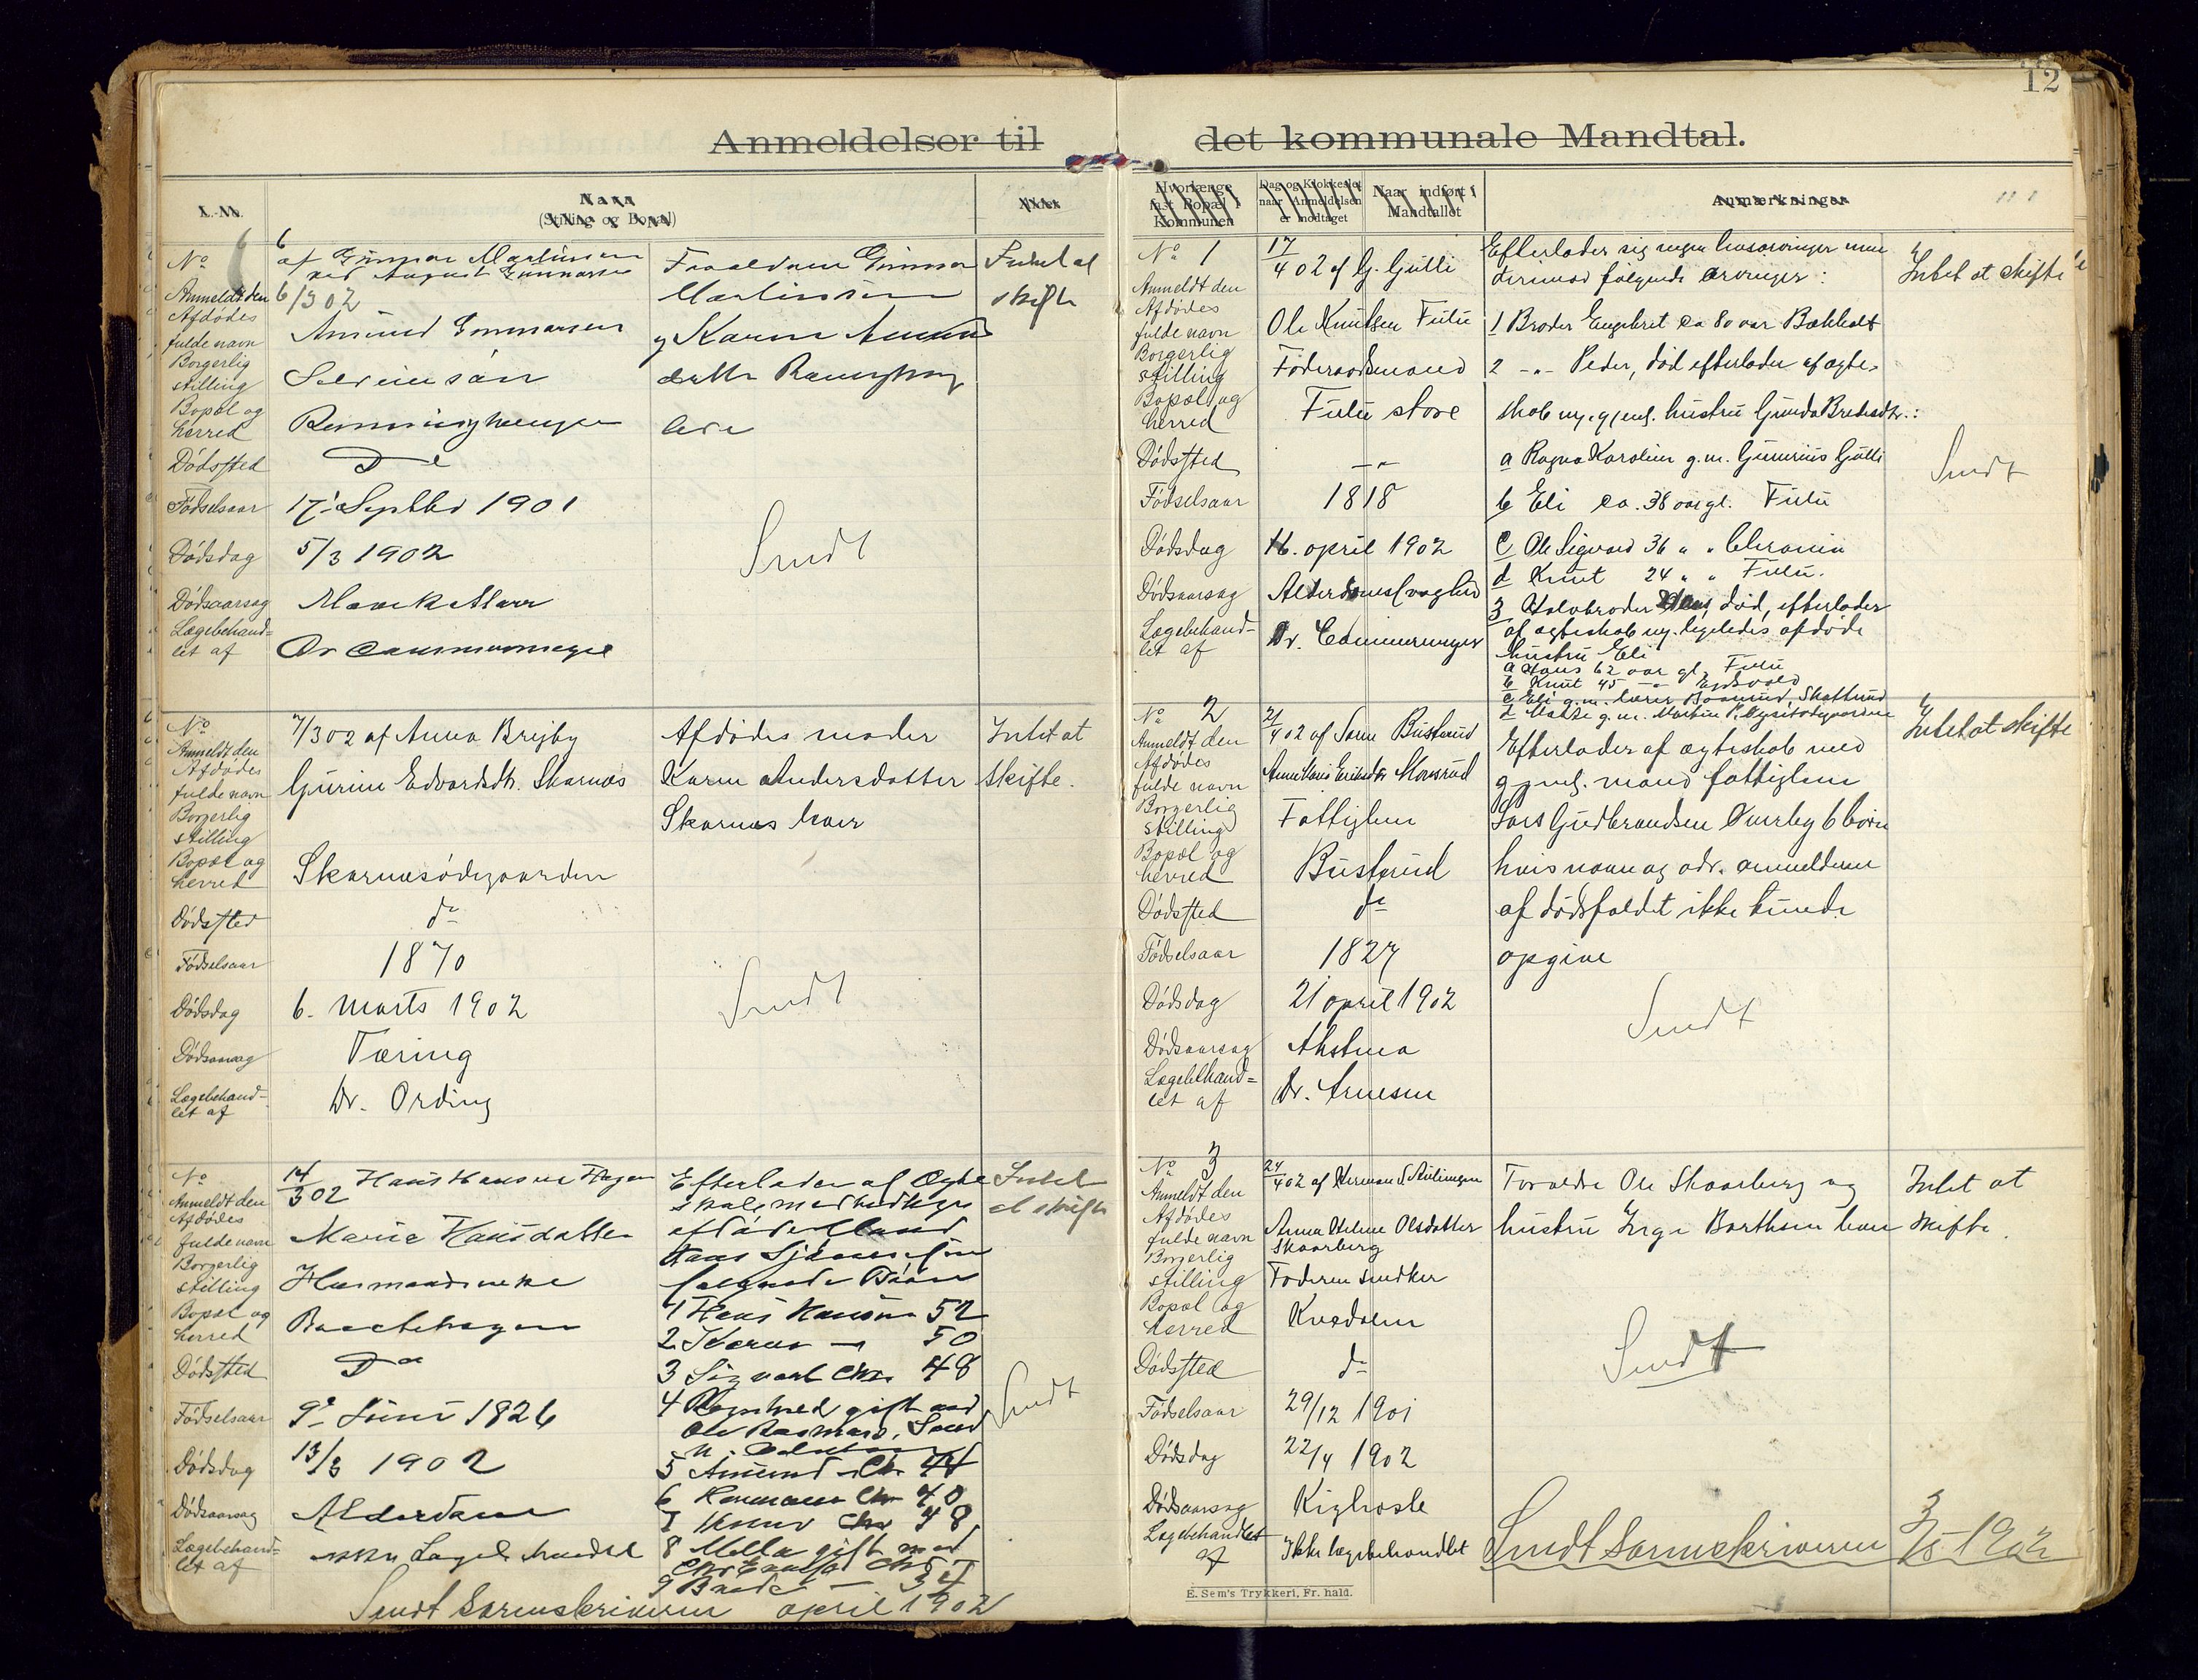 12
Anmeldelser til det kommunale Mandtal.
L.-No.
Navn
(Stilling og Bopæl)
Hvorlænge
fast Bopæl i
Kommunen
Dag og Klokkeslet
naar Anmeldelsen
er modtaget
Naar indført i
Mandtallet
Anmærkninger
No 6
af Gunnar Martinsen
ved August Gunnarsen
Anmeldt den 6/3 02
Afdødes
fulde navn
Amund Gunnarsen
Borgerlig
stilling
Bopæl og
herred
Dødssted Do
Fødselsaar 17 Septbr 1901
Dødsdag 5/3 1902
Dødsaarsag
Lægebehand-
let af
Forældrene Gunnar
Martinsen
og Karen Amunds
datter
Intet at
skifte
Sendt
No
Anmeldt den 7/3 02 af Anna Brejby
Afdødes
fulde navn Gurine Edvardsdtr. Skarnæs
Borgerlig
stilling
Bopæl og
herred Skarnæsødegaarden
Dødssted do
Fødselsaar 1870
Dødsdag 6. marts 1902
Dødsaarsag Tæring
Lægebehand-
let af Dr. Ording
Afdødes moder
Karen Andersdatter
Skarnæs
Intet at
skifte.
Sendt
No
Anmeldt den 14/3 02 Hans Hansen Hagen
Afdødes
fulde navn Marie Hansdatter
Borgerlig
stilling Husmandsenke
Bopæl og
herred
Dødssted Do
Fødselsaar 9 Juni 1826
Dødsdag 13/3 1902
Dødsaarsag Alderdom
Lægebehand-
let af ikke Læge
Efterlader af Ægte
skab med
afdøde Mand
Hans
følgende Børn
1 Hans Hansen 52
2 Karen — 50
3 Sigvart Chr. 48
4 gift med
Ole
5 Amund Chr 44
6 Chr 40
7 Chr 48
8 gift med
9
Intet
at skifte
Sendt
Sendt Sorenskriveren april 1902
No 1
Anmeldt den 17/4 02 af G. Gulli
Afdødes
fulde navn Ole Knutsen Fulu
Borgerlig
stilling Føderaadsmand
Bopæl og
herred Fulu store
Dødssted —"—
Fødselsaar 1818
Dødsdag 16. april 1902
Dødsaarsag Alderdomssvaghed
Lægebehand-
let af Dr. Cammermeyer
Efterlader sig ingen livsarvinger men
derimod følgende arvinger:
1 Broder Engebret ca 80 aar Bækholt
2 —"— Peder, død efterlader af ægte-
skab m. gjenl. hustru Gunda Bredesdtr.:
a Ragna Karoline g.m. Gulli
b Eli ca. 38 aar gl. Fulu
c Ole Sigvard 36 " "
d Knut 24 " " Fulu.
3 Halvbroder Hans, død, efterlader
af ægteskab m. ligeledes afdøde
hustru Eli
a Hans 62 aar gl. Fulu
b Knut 45 —"— Eidsvold
c Eli g.m.
Intet at skifte
Sendt
No 2
Anmeldt den 21/4 02 af
Afdødes
fulde navn
Borgerlig
stilling Fattiglem
Bopæl og
herred
Dødssted do
Fødselsaar 1827
Dødsdag 21 april 1902
Dødsaarsag Ahstma
Lægebehand-
let af Dr. Arnesen
Efterlader af ægteskab med
gjenl. mand fattiglem
Lars Gudbrandsen 6 børn
hvis navn og adr. anmelderen
af dødsfaldet ikke kunde
opgive
Intet at skifte
Sendt
No 3
Anmeldt den 24/4 02 af Herman
Afdødes
fulde navn Anna Helene Olsdatter
Skaarberg
Borgerlig
stilling Faderen snedker
Bopæl og
herred
Dødssted do
Fødselsaar 29/12 1901
Dødsdag 22/4 1902
Dødsaarsag Kighoste
Lægebehandlet
af Ikke lægebehandlet
Forældre Ole Skaarberg og
hustru Inga
Intet at
skifte
Sendt
Sendt Sorenskriveren 3/5 1902
E. Sem's Trykkeri, Fr. hald.